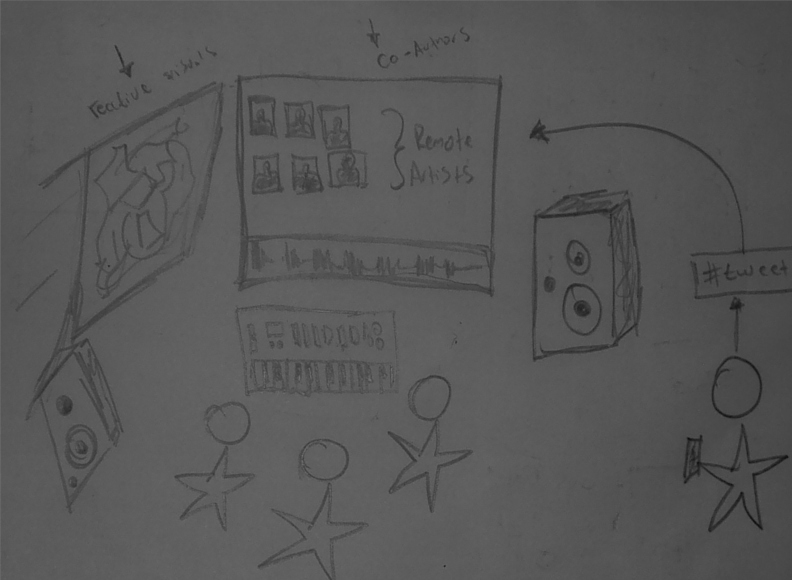 reactive visuals
Co-Authors
Remote
Artists
#tweet